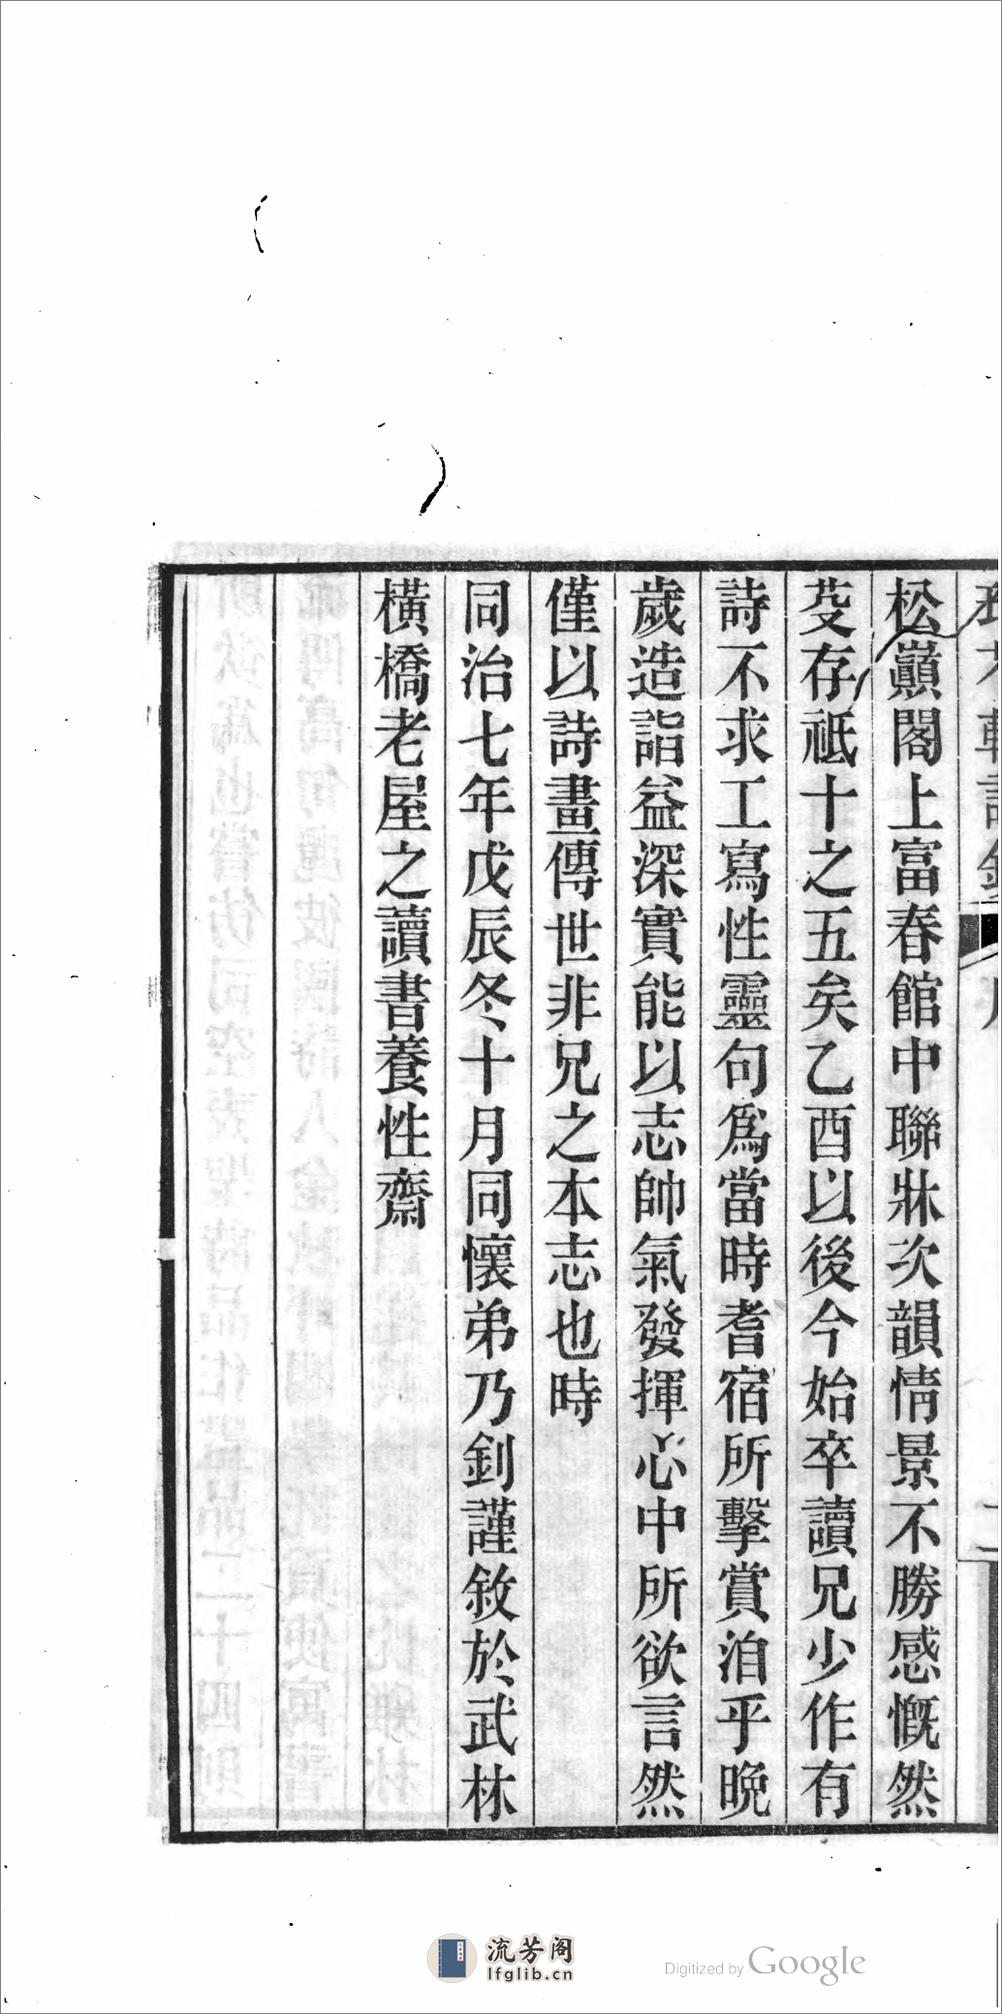 松巓閣上富春館中聯牀次韻情景不勝感慨然
芟存祗十之五矣乙酉以後今始卒讀兄少作有
詩不求工寫性靈句爲當時耆宿所擊賞洎乎晩
歲造詣益深實能以志帥氣發揮心中所欲言然
僅以詩畫傳世非兄之本志也時
同治七年戊辰冬十月同懷弟乃釗謹敘於武林
橫橋老屋之讀書養性齋
流芳阁
lfglib.cn
Digitized by Google